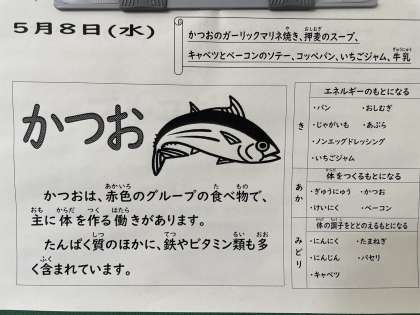 5月8日(水)
かつおのガーリックマリネ焼き、押麦のスープ、
キャベツとベーコンのソテー、コッペパン、いちごジャム、牛乳
かつお
かつおは、赤色のグループの食べ物で、
主に体を作る働きがあります。
たんぱく質のほかに、鉄やビタミン類も多
く含まれています。
き
エネルギーのもとになる
・パン ・おしむぎ
・じゃがいも ・あぶら
・ノンエッグドレッシング
・いちごジャム
あか
体をつくるもとになる
・ぎゅうにゅう ・かつお
・けいにく ・ベーコン
みどり
体の調子をととのえるもとになる
・にんにく ・たまねぎ
・にんじん ・パセリ
・キャベツ